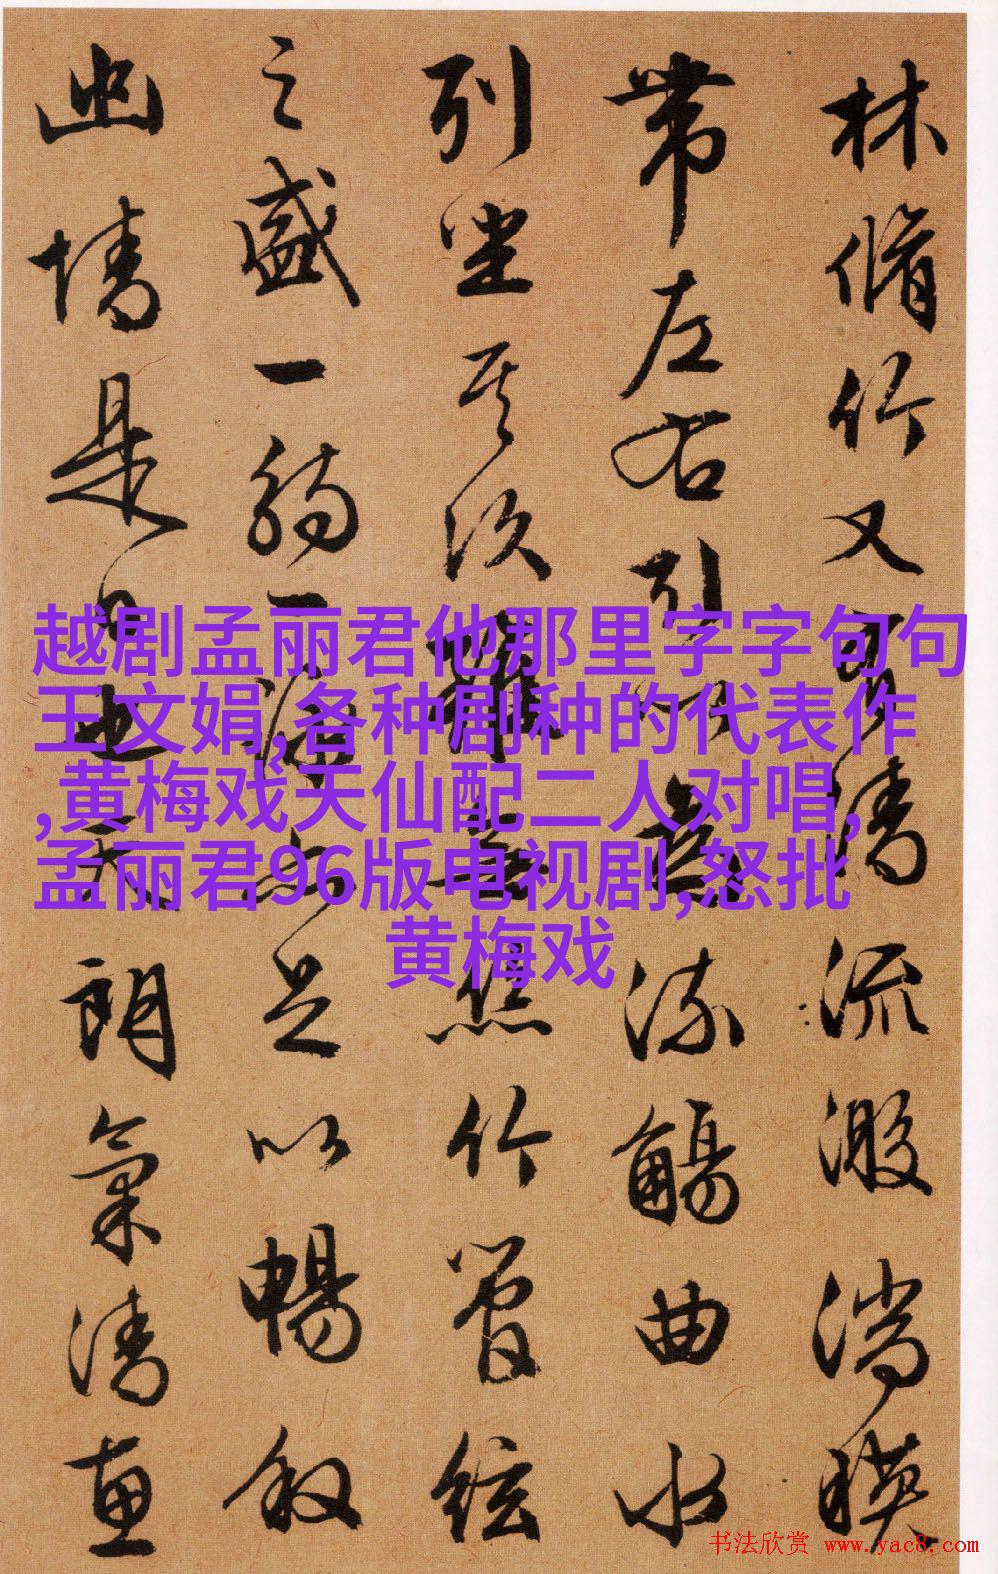 林脩竹又有清流激湍暎
帶左右引以為流觴曲水
列坐其次雖無絲竹管絃
之盛一觴一詠亦足以暢敘
幽情是日也天朗氣清惠
越剧孟丽君他那里字字句句
王文娟,各种剧种的代表作
,黄梅戏天仙配二人对唱,
孟丽君96版电视剧,怒批
黄梅戏
书法欣赏 www.yac8.com